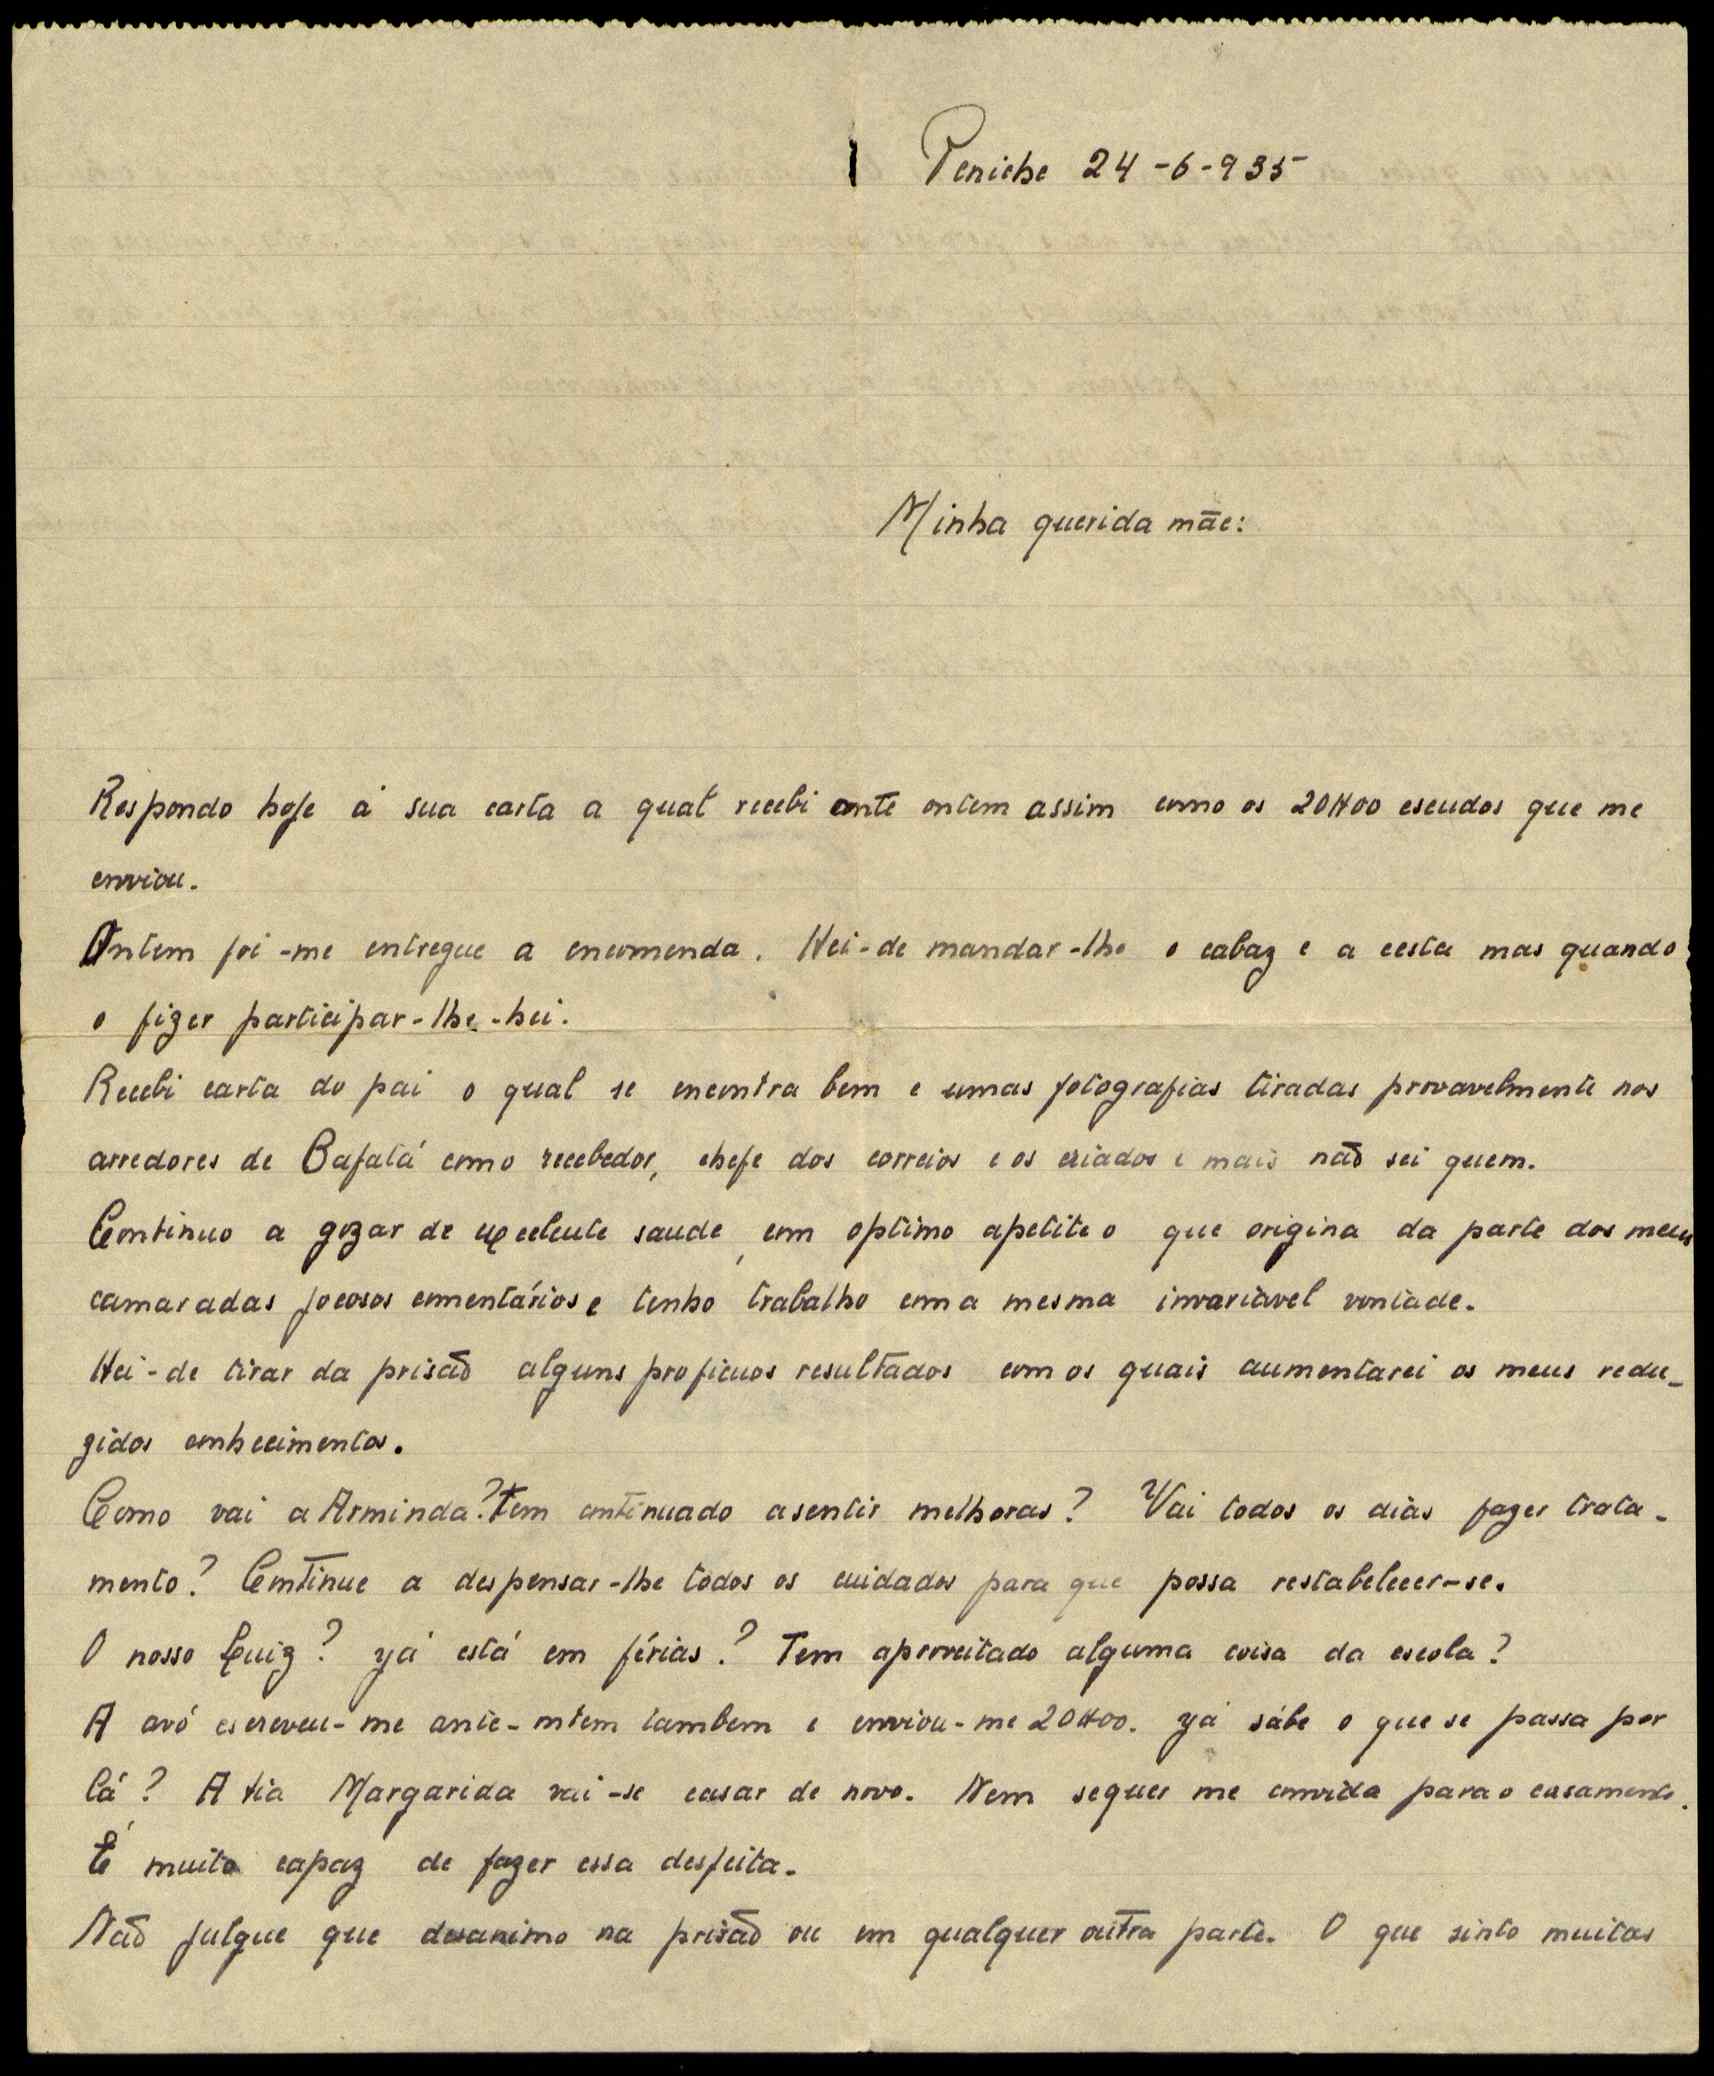 Peniche 24-6-935
Minha querida mãe:
Respondo hoje á sua carta a qual recebi ante ontem assim como os 20$00 escudos que me
enviou.
Ontem foi-me entregue a encomenda. Hei-de mandar-lhe o cabaz e a cesta mas quando
o fizer participar-lhe-hei.
Recebi carta do pai o qual se encontra bem e umas fotografias tiradas provavelmente nos
arredores de Bafatá como recebedor, chefe dos correios e os criados e mais não sei quem.
Continuo a gozar de excelente saude, com optimo apetite o que origina da parte dos meus
camaradas jocosos comentários e tenho trabalho com a mesma invariavel vontade.
Hei-de tirar da prisão alguns proficuos resultados com os quais aumentarei os meus redu-
zidos conhecimentos.
Como vai a Arminda? Tem continuado a sentir melhoras? Vai todos os dias fazer trata-
mento? Continue a despensar-lhe todos os cuidados para que possa restabelecer-se.
O nosso Luiz? Já está em férias? Tem aproveitado alguma coisa da escola?
A avó escreveu-me ante-ontem tambem e enviou-me 20$00. Já sábe o que se passa por
lá? A tia Margarida vai-se casar de novo. Nem sequer me convida para o casamento.
É muito capaz de fazer essa desfeita.
Não julgue que desanimo na prisão ou em qualquer outra parte. O que sinto muitas